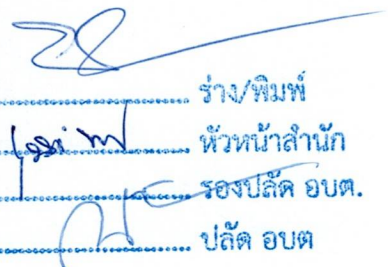 ร่าง/พิมพ์
หัวหน้าสำนัก
รองปลัด อบต.
ปลัด อบต